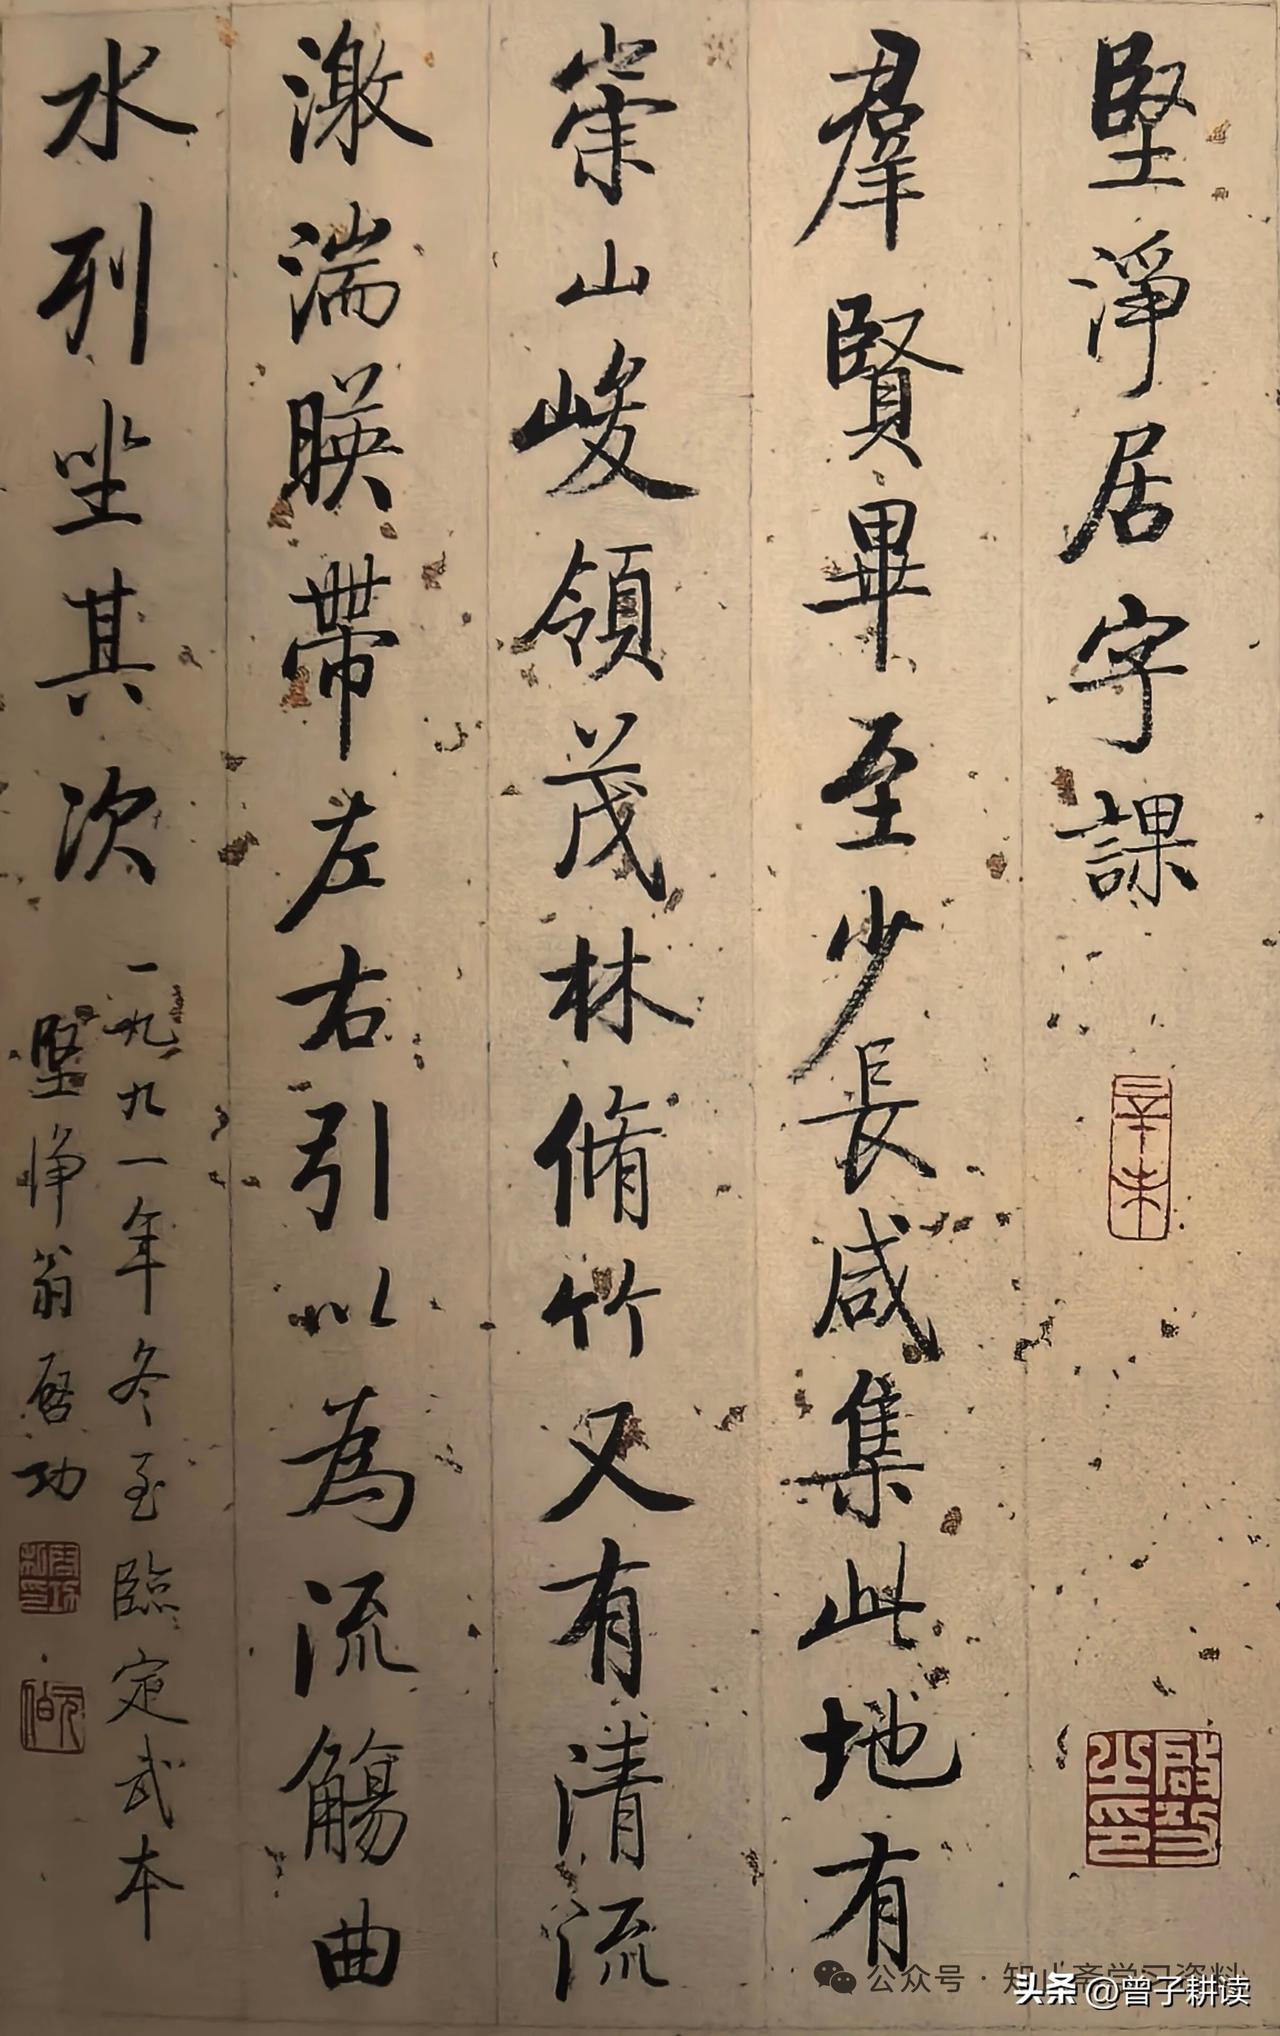 堅淨居字課
辛未
啟功之印
羣賢畢至少長咸集此地有
崇山峻領茂林脩竹又有清流
激湍暎帶左右引以為流觴曲
水列坐其次
一九九一年冬至臨定武本
堅淨翁啓功
公众号·知止斋学习资料
头条@曾子耕读